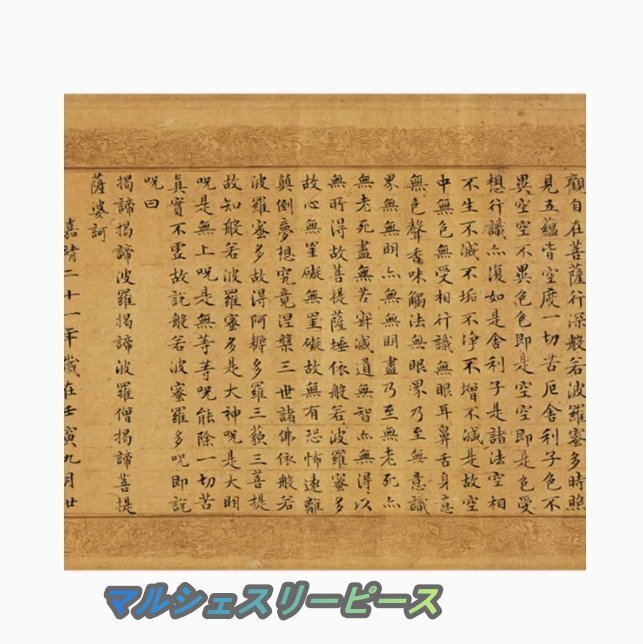 觀自在菩薩行深般若波羅蜜多時照
見五蘊皆空度一切苦厄舍利子色不
異空空不異色色即是空空即是色受
想行識亦復如是舍利子是諸法空相
不生不滅不垢不淨不增不減是故空
中無色無受相行識無眼耳鼻舌身意
無色聲香味觸法無眼界乃至無意識
界無無明亦無無明盡乃至無老死亦
無老死盡無苦寂滅道無智亦無得以
無所得故菩提薩埵依般若波羅蜜多
故心無罣礙無罣礙故無有恐怖遠離
顛倒夢想究竟涅槃三世諸佛依般若
波羅蜜多故得阿耨多羅三藐三菩提
故知般若波羅蜜多是大神呪是大明
呪是無上呪是無等等呪能除一切苦
真實不虛故說般若波蜜羅多呪即說
呪曰
揭諦揭諦波羅揭諦波羅僧揭諦菩提
薩婆訶
嘉靖二十一年歲在壬寅九月廿
マルシェスリーピース